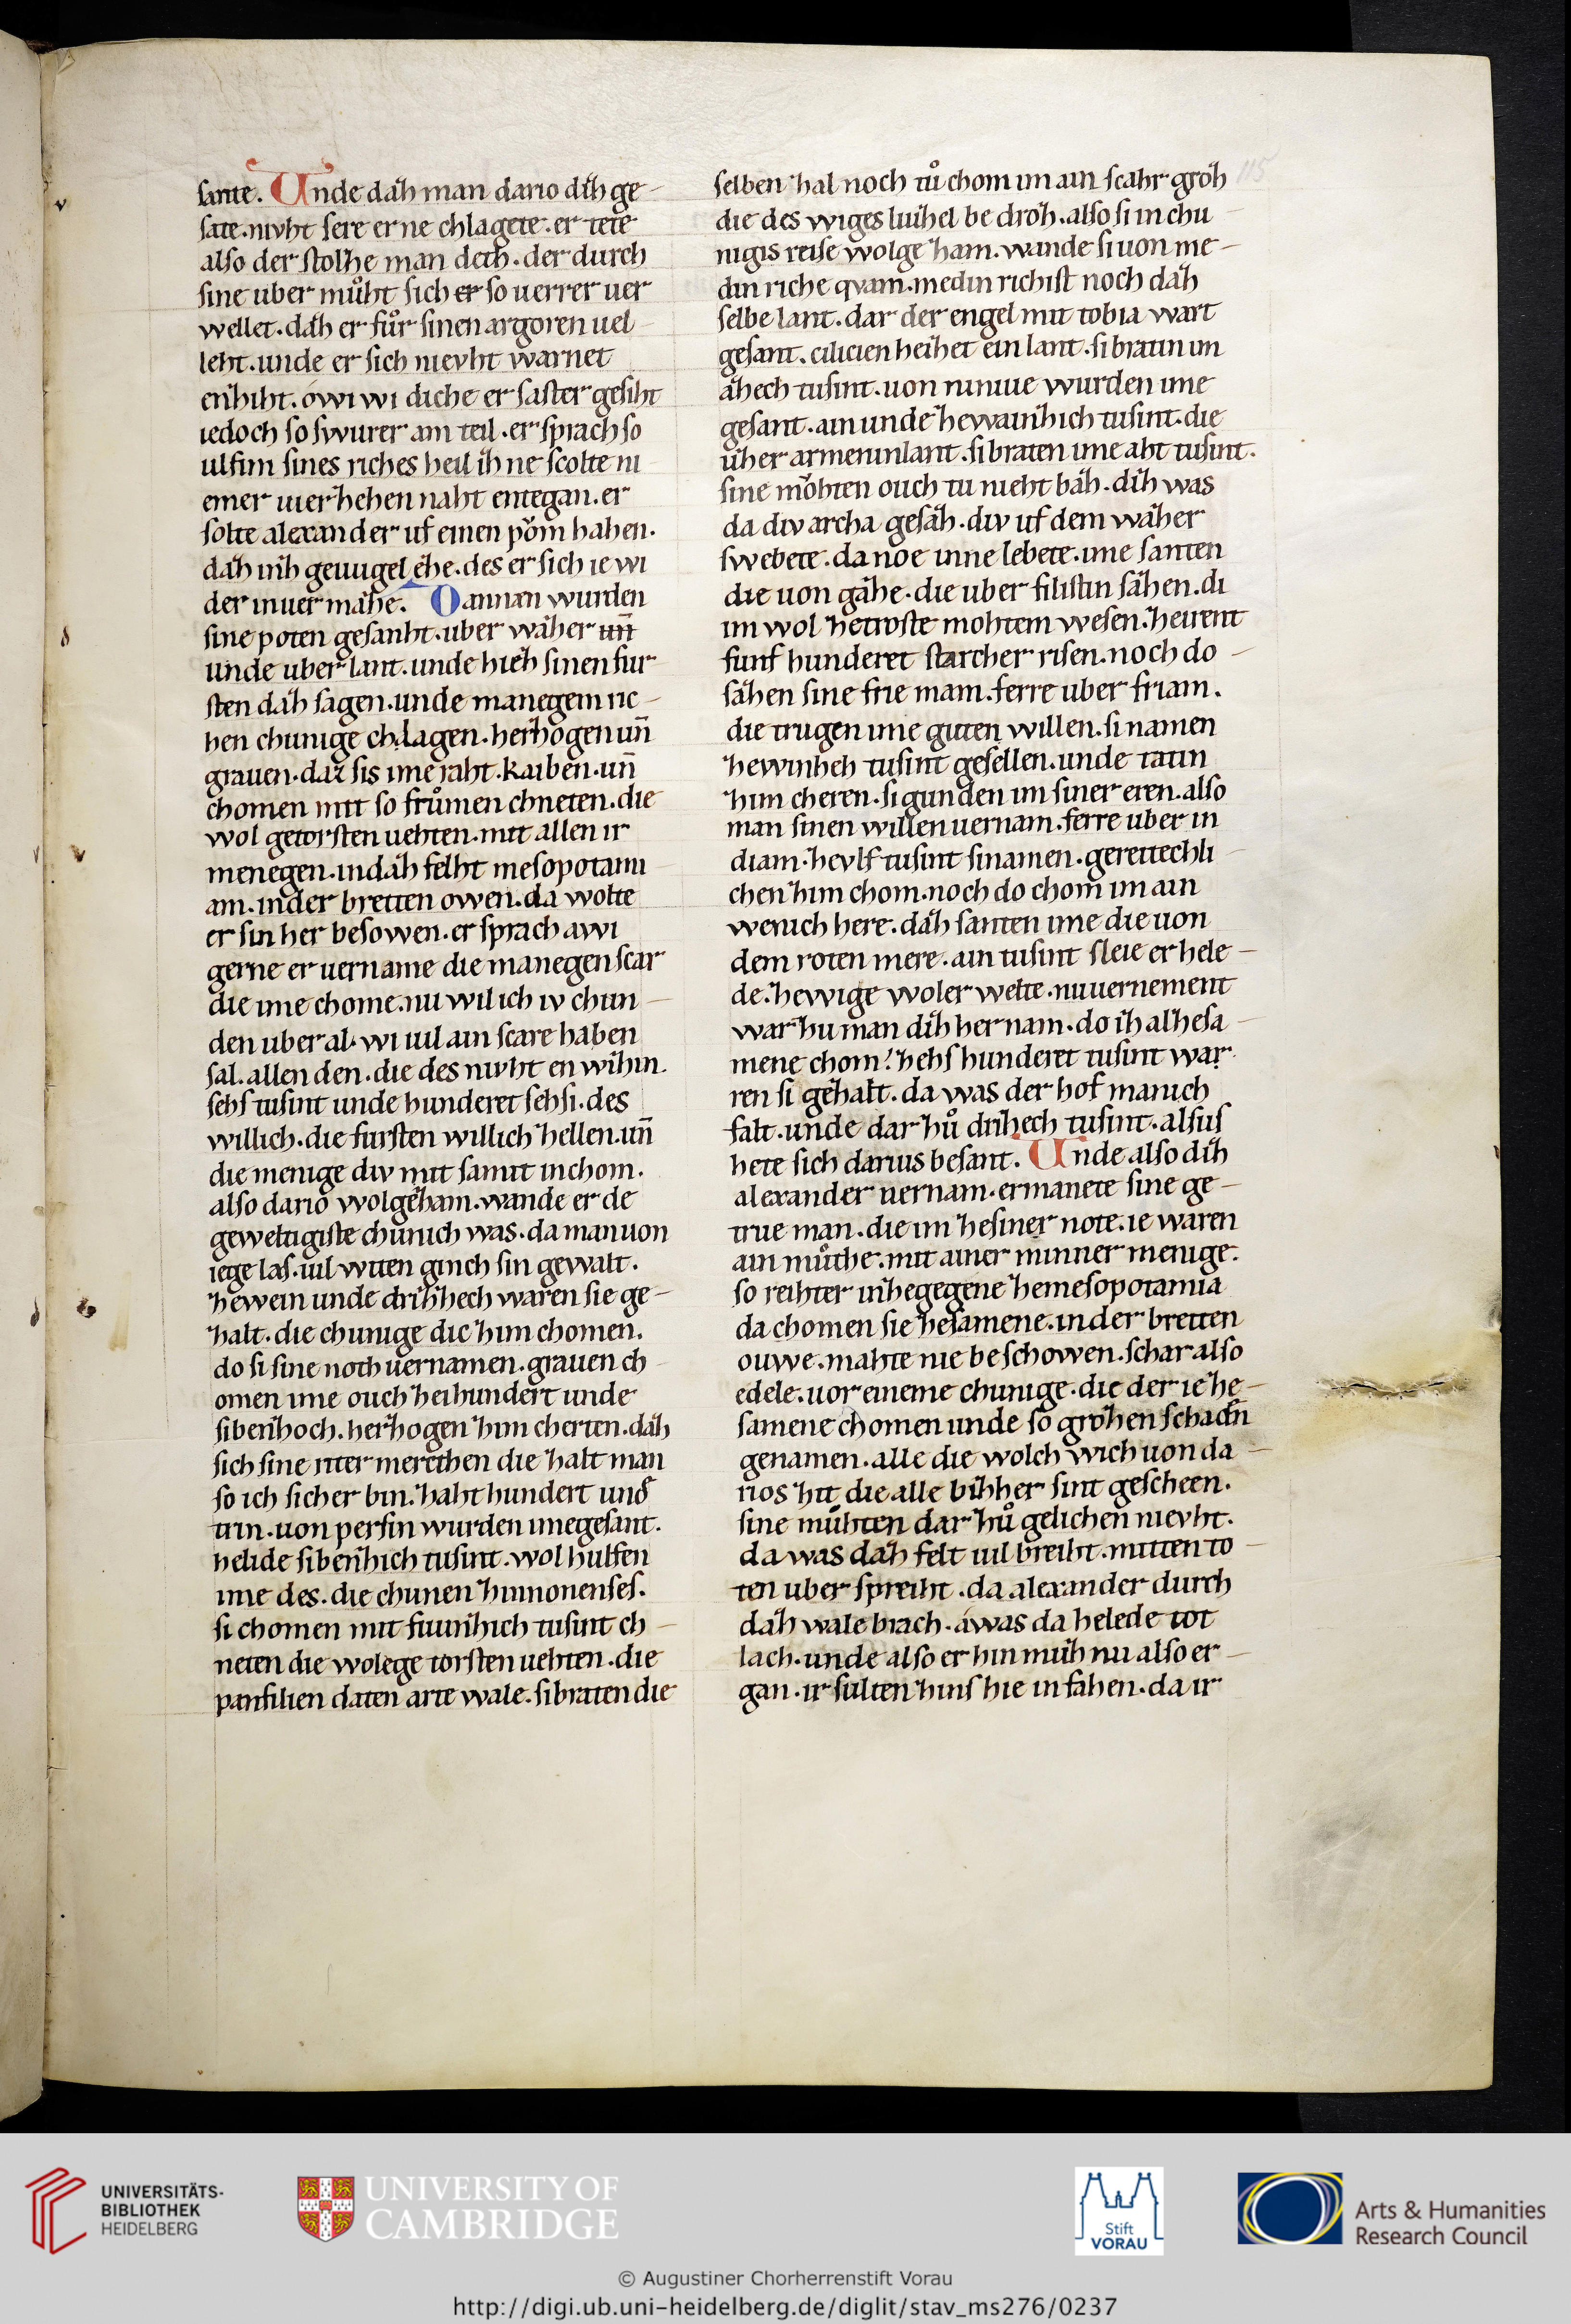 sante. Unde daz man dario diz ge-
sate. nivht sere er ne chlagete. er tete
also der stolze man deth. der durch
sine uber můzt sich er so uerrer uer
wellet. daz er fůr sinen argoren uel
lezt. unde er sich nievht warnet
enzizt. owi wi diche er saster gesizt
iedoch so swurer ain teil. er sprach so
ulfim sines riches heil iz ne scolte ni
emer vierzehen naht entegan. er
solte alexander uf einen pǒm hahen.
daz inz geuugel eze. des er sich ie wi
der in uermaze. Dannan wurden
sine poten gesanht. uber wazer un̄
unde uber lant. unde hiez sinen fur
sten daz sagen. unde manegem ric-
hen chunige chlagen. herzogen un̄
grauen. daz sis ime raht. kaiben. un̄
chomen mit so frůmen chneten. die
wol getorsten uehten. mit allen ir
menegen. in daz felht mesopotami
am. in der breiten owen. da wolte
er sin her besowen. er sprach awi
gerne er uername die manegen scar
die ime chome. nu wil ich iv chun-
den uber al. wi uil ain scare haben
sal. allen den. die des nivht en wizin.
sehs tusint unde hunderet sehsi. des
willich. die fursten willich zellen. un̄
die menige div mit samit in chom.
also dario wolgezam. wande er de
geweltigiste chunich was. da man uon
iege las. uil witen ginch sin gewalt.
zewein unde drizzech waren sie ge-
zalt. die chunige die zim chomen.
do si sine noth uernamen. grauen ch
omen ime ouch zeihundert unde
sibenzoch. herzogen zim cherten. daz
sich sine riter merethen die zalt man
so ich sicher bin. zaht hundert und
trin. uon persin wurden ime gesant.
helide sibenzich tusint. wol hulfen
ime des. die chunen zinnonenses.
si chomen mit fiunzich tusint ch-
neten die wolege torsten uehten. die
panfilien daten arte wale. si braten die
selben zal noch tů chom im ain scahr groz
die des wiges luizel be droz. also si in chu
nigis reise wolge zam. wande si uon me-
din riche qvam. medin rich ist noch daz
selbe lant. dar der engel mit tobia wart
gesant. cilicien heizet ein lant. si bratin im
azech tusint. uon niniue wurden ime
gesant. ain unde zewainzich tusint. die
uzer armenin lant. si braten ime aht tusint.
sine mǒhten ouch tu nieht baz. diz was
da div archa gesaz. div uf dem wazer
swebete. da noe inne lebete. ime santen
die uon gaze. die uber filistin sazen. di
im wol zetroste mohtem wesen. zeirent
funf hunderet starcher risen. noch do-
sazen sine frie mam. ferre uber friam.
die trugen ime guten willen. si namen
zewinzeh tusint gesellen. unde tatin
zim cheren. si gunden im siner eren. also
man sinen willen uernam. ferre uber in
diam. zevlf tusint si namen. gereitechli-
chen zim chom. noch do chom im ain
wenich here. daz santen ime die uon
dem roten mere. ain tusint sleie er hele-
de. zewige woler welte. nu uernement
war zu man diz her nam. do iz al zesa-
mene chom! zehs hunderet tusint war
ren si gezalt. da was der hof manich
falt. unde dar zů drizech tusint. alsus
hete sich darius besant. Unde also diz
alexander uernam. er manete sine ge-
true man. die im zesiner note. ie waren
ain můthe. mit ainer minner menige.
so reihter in zegegene zemesopotamia
da chomen sie zesamene. in der breiten
ouwe. mahte nie beschowen. schar also
edele. uor eineme chunige. die der ie ze-
samene chomen unde so grozen schadn
genamen. alle die wolch wich uon da-
rios zit die alle bizher sint gescheen.
sine muhten dar zů gelichen nievht.
da was daz felt uil breiht. mitten to-
ten uber spreiht. da alexander durch
daz wale brach. awas da helede tot
lach. unde also er hin muz nu also er-
gan. ir sulten zins hie in fahen. da ir
115
UNIVERSITÄTS-
BIBLIOTHEK
HEIDELBERG
UNIVERSITY OF
CAMBRIDGE
Stift
VORAU
Arts & Humanities
Research Council
© Augustiner Chorherrenstift Vorau
http://digi.ub.uni-heidelberg.de/diglit/stav_ms276/0237